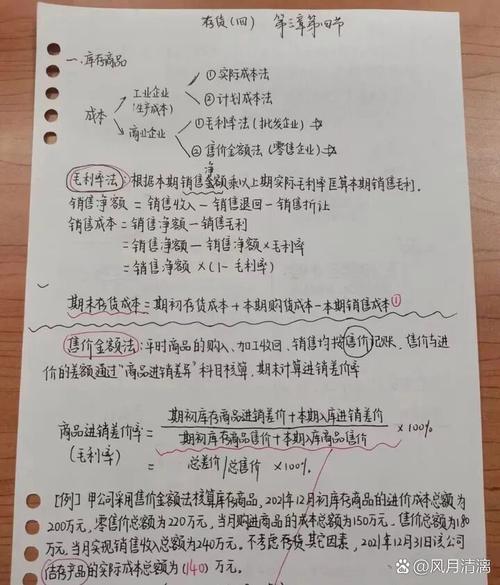 存货(四) 第三章第四节
一.库存商品
成本
工业企业
(生产成本)
①实际成本法
②计划成本法
商业企业
①毛利率法(批发企业)
②售价金额法(零售企业)
毛利率法:根据本期销售净金额乘以上期实际毛利率匡算本期销售毛利.
销售净额 = 销售收入-销售退回-销售折让
销售成本 = 销售净额-销售毛利
= 销售净额-销售净额×毛利率
= 销售净额×(1-毛利率)
期末存货成本=期初存货成本+本期购货成本-本期销售成本①
售价金额法:平时商品的购入、加工收回、销售均按售价记账、售价与进
价的差额通过"商品进销差异"科目核算,期末计算进销差价率
商品进销差价率= 期初库存商品进销差价+本期入库进销差价
(毛利率) 期初库存商品售价+本期入库商品售价 ×100%
= 总差价/总售价 ×100%.
[例] 甲公司采用售价金额法核算库存商品,2021年12月初库存商品的进价成本总额为
200万元,零售价总额为220万元,当月购进商品的成本总额为150万元.售价总额为180
万元,当月实现销售收入总额为240万元.不考虑存货其它因素,2021年12月31日该公司
结存产品的实际成本总额为(140)万元.
风月清漓